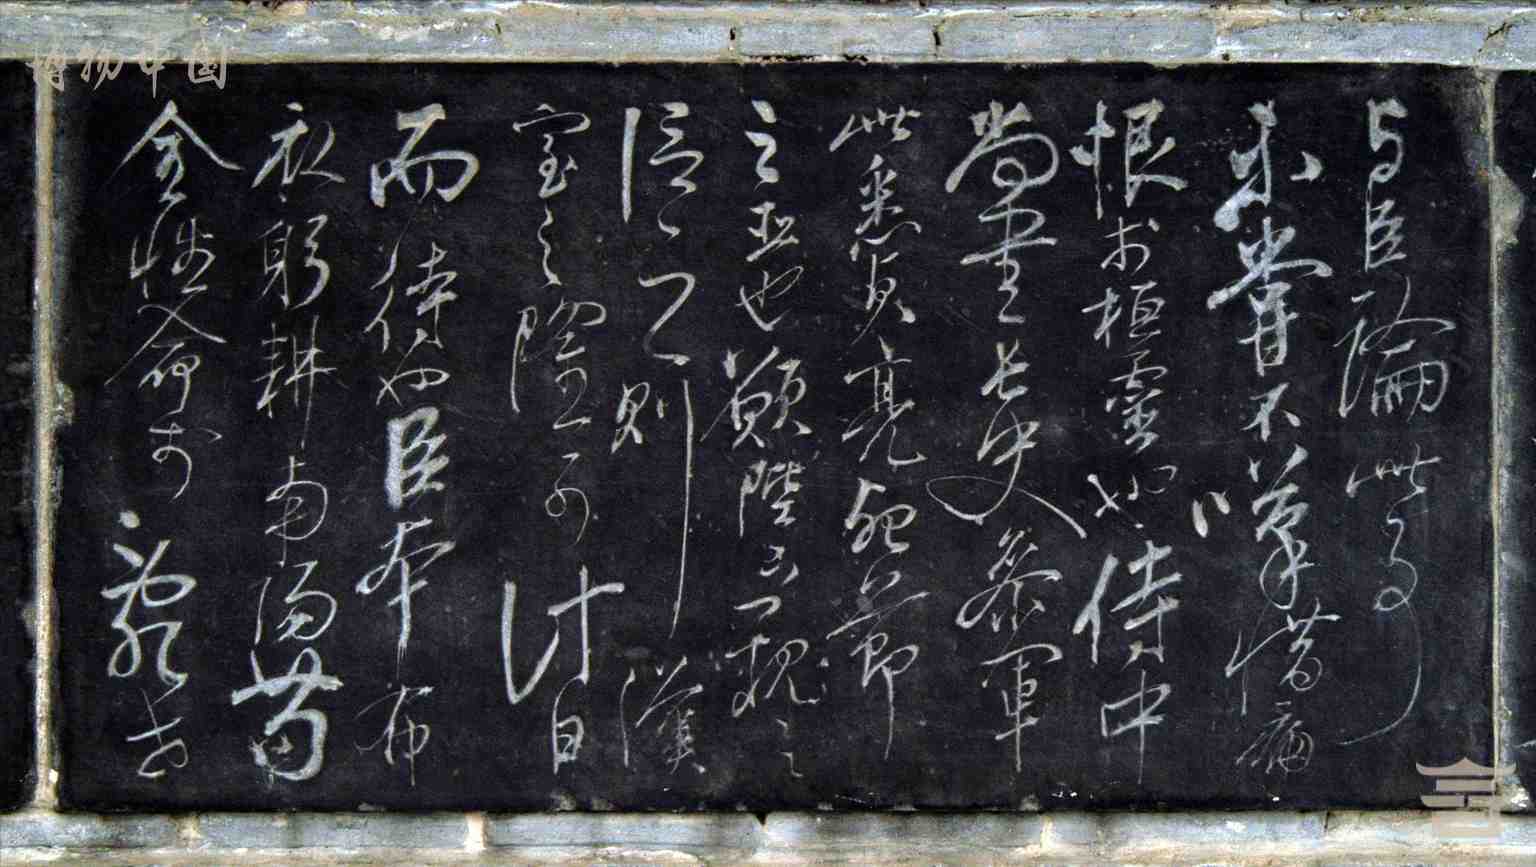 博物中国
与臣論此事
未嘗不嘆惜痛
恨於桓靈也侍中
尚書長史參軍
此悉貞亮死節
之臣也願陛下親之
信之則漢
室之隆可計日
而待也臣本布
衣躬耕南陽苟
全性命於亂世